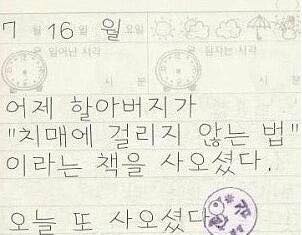 7 월 16 일 월 요일
일어난 시각
잠자는 시각
시 분 시 분
어제 할아버지가
"치매에 걸리지 않는 법"
이라는 책을 사오셨다.
오늘 또 사오셨다